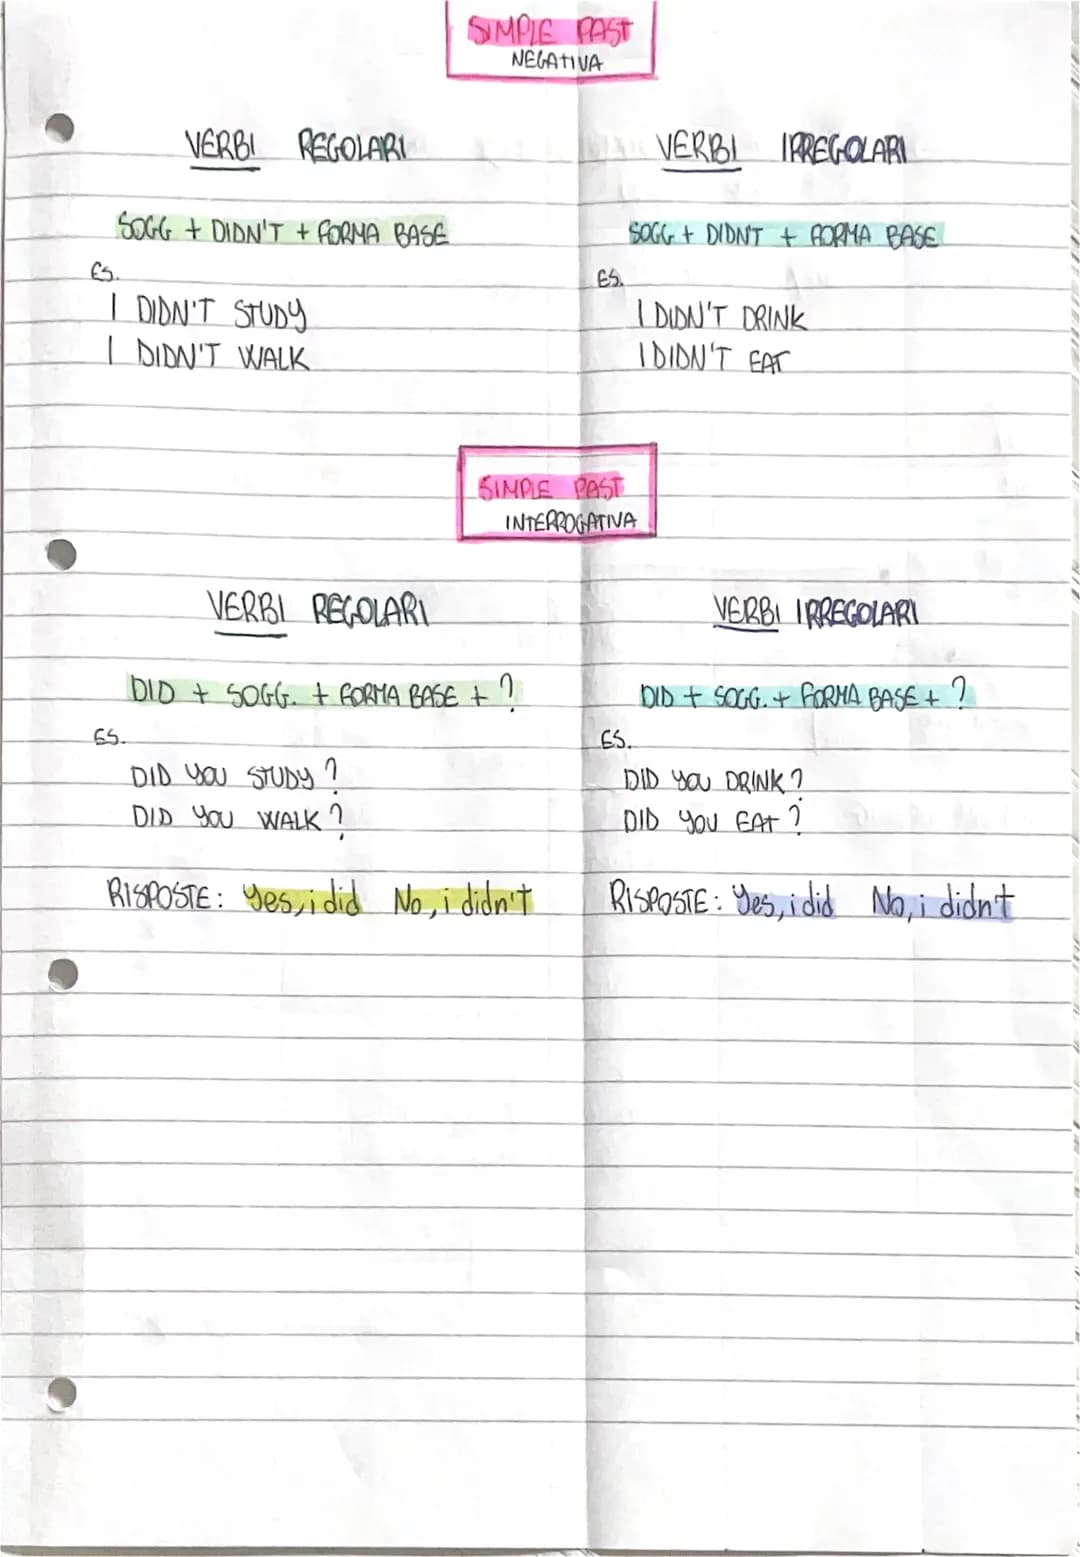 SIMPLE PAST
NEGATIVA
VERBI REGOLARI
SOGG + DIDN'T + FORMA BASE
ES.
I DIDN'T STUDY
I DIDN'T WALK
VERBI IRREGOLARI
SOGG + DIDNT + FORMA BASE
ES.
I DIDN'T DRINK
I DIDN'T EAT
SIMPLE PAST
INTERROGATIVA
VERBI REGOLARI
DID + SOGG. + FORMA BASE + ?
ES.
DID YOU STUDY?
DID YOU WALK?
RISPOSTE: Yes, i did No, i didn't
VERBI IRREGOLARI
DID + SOGG. + FORMA BASE + ?
ES.
DID YOU DRINK?
DID YOU EAT?
RISPOSTE: Yes, i did No, i didn't